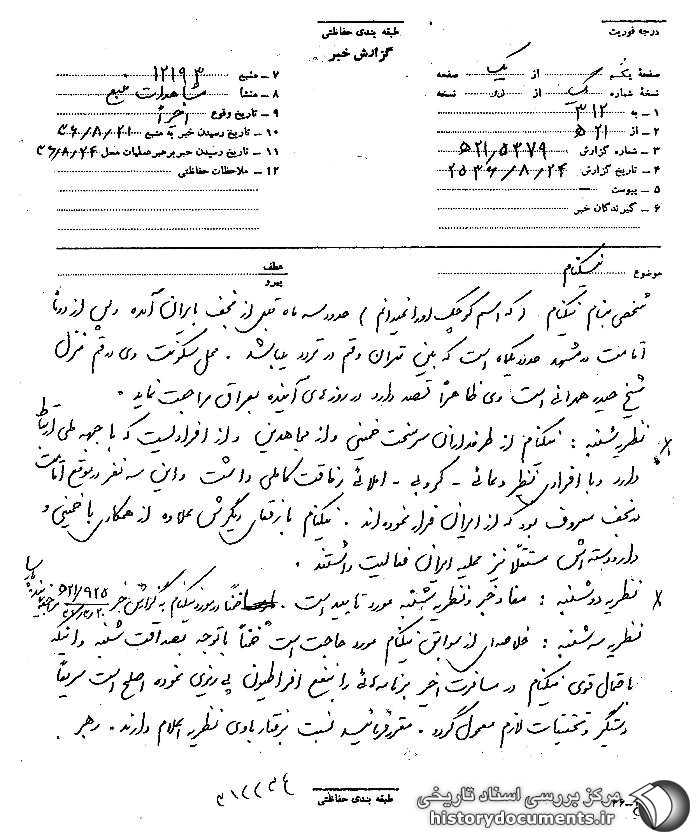 درجه فوریت
طبقه بندی حفاظتی
گزارش خبر
صفحهٔ یک از یک صفحه
نسخهٔ شماره یک از نسخه
۱ – به ۳۱۲
۲ – از ۵۲۱
۳ – شماره گزارش ۵۲۱/۵۲۷۹
۴ – تاریخ گزارش ۲۵۳۶/۸/۲۴
۵ – پیوست –
۶ – گیرندگان خبر
۷ – منبع ۱۲۱۹۳
۸ – منشأ مشاهدات منبع
۹ – تاریخ وقوع اخیراً
۱۰ – تاریخ رسیدن خبر به منبع ۳۶/۸/۲۱
۱۱ – تاریخ رسیدن خبر برهبر عملیات محل ۳۶/۸/۲۴
۱۲ – ملاحظات حفاظتی
موضوع نیکنام
عطف
پیرو
شخصی بنام نیکنام (که اسم کوچک اورا نمیدانم) حدود سه ماه قبل از نجف بایران آمده و پس از
اقامت در مشهد حدود یکماه است که بین تهران و قم در تردد میباشد . محل سکونت وی در قم منزل
شیخ حیدر همدانی است وی ظاهراً قصد دارد در روزهای آینده بعراق مراجعت نماید .
نظریه شنبه : نیکنام از طرفداران سرسخت خمینی و از مجاهدین و از افرادیست که با جبهه ملی ارتباط
دارد و با افرادی – کروبی – املائی رفاقت کاملی داشت و این سه نفر در موقع اقامت
در نجف معروف بود که از ایران فرار نموده اند . نیکنام با رفقای دیگرش علاوه از همکاری با خمینی و
دارودسته اش مستقلاً نیز علیه ایران فعالیت داشتند .
نظریه دوشنبه : مفاد خبر و نظریه شنبه مورد تایید است . ضمناً در مورد نیکنام به گزارش خبر ۵۲۱/۹۲۵
نظریه سه شنبه : خلاصه ای از سوابق نیکنام مورد حاجت است ضمناً با توجه بصداقت شنبه و اینکه
باحتمال قوی نیکنام در مسافرت اخیر برنامه هائی را بنفع افراطیون پی ریزی نموده اصلح است سریعاً
دستگیر و تحقیقات لازم معمول گردد . مقرر فرمائید نسبت برفتار باوی نظریه اعلام دارند . رهبر
طبقه بندی حفاظتی
مرکز بررسی اسناد تاریخی
historydocuments.ir